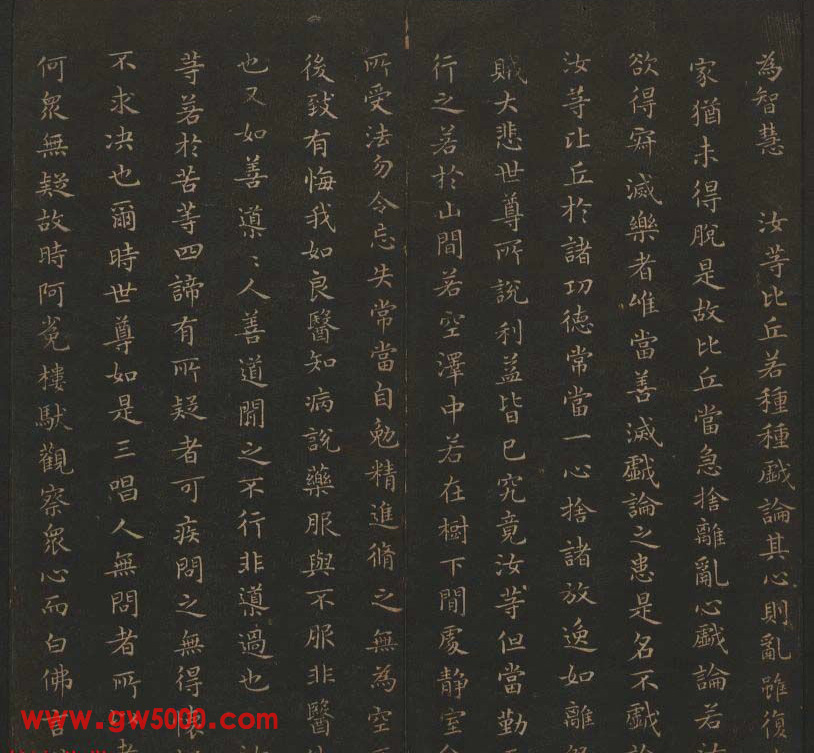 為智慧 汝等比丘若種種戲論其心則亂雖復
家猶未得脫是故比丘當急捨離亂心戲論若
欲得寂滅樂者唯當善滅戲論之患是名不戲
汝等比丘於諸功德常當一心捨諸放逸如離
賊大悲世尊所說利益皆已究竟汝等但當勤
行之若於山間若空澤中若在樹下閒處靜室
所受法勿令忘失常當自勉精進脩之無為空
後致有悔我如良醫知病說藥服與不服非醫
也又如善導〻人善道聞之不行非導過也
等若於苦等四諦有所疑者可疾問之無得懷
不求決也爾時世尊如是三唱人無問者所以
何眾無疑故時阿㝹樓馱觀察眾心而白佛言
www.gw5000.com